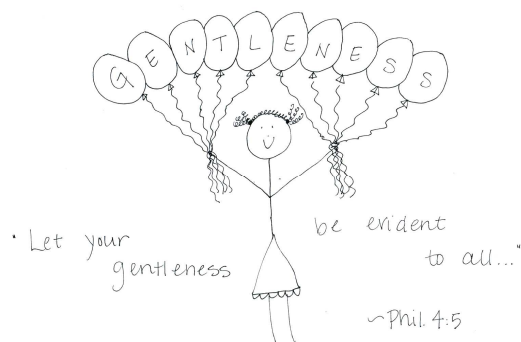 GENTLENESS
"Let your
gentleness
be evident
to all..."
~Phil. 4:5